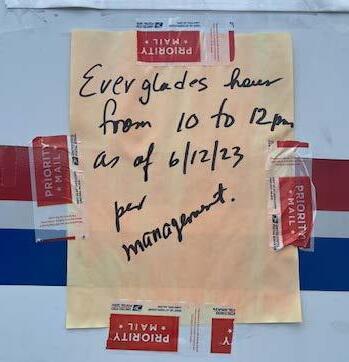 PRIORITY
MAIL
Everglades hour
from 10 to 12pm
as of 6/12/23
per
management.
PRIORITY
MAIL
PRIORITY
MAIL
PRIORITY
MAIL